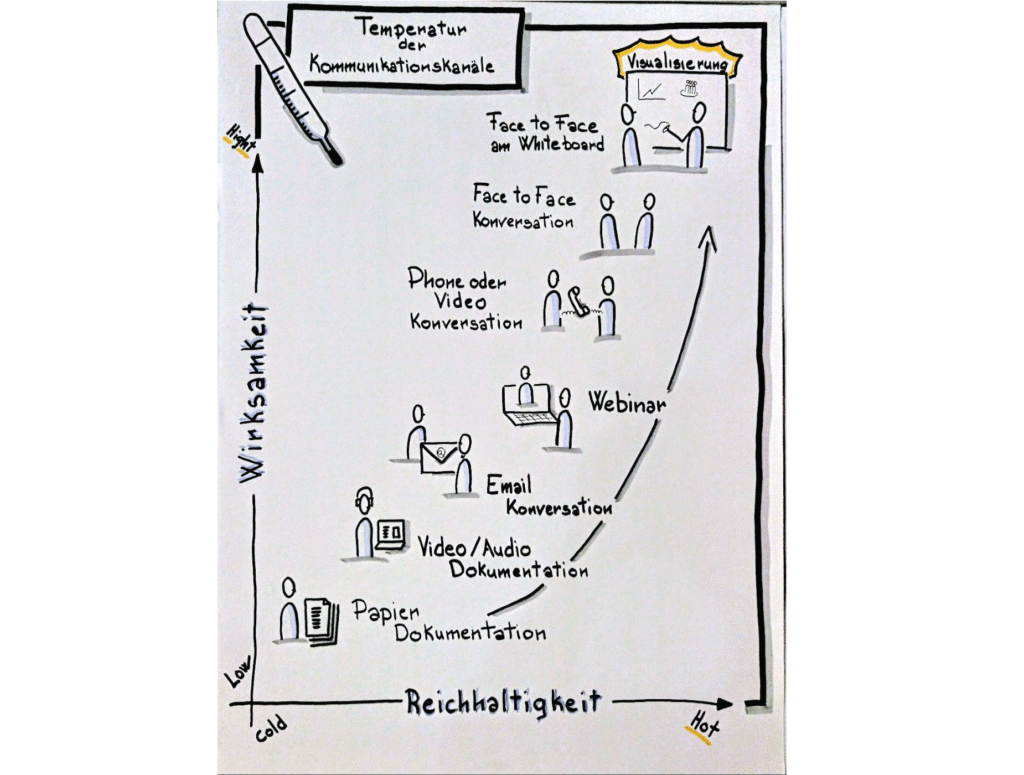 Temperatur
der
Kommunikationskanäle
Visualisierung
Hight
Face to Face
am Whiteboard
Face to Face
Konversation
Phone oder
Video
Konversation
Wirksamkeit
Webinar
Email
Konversation
Video/Audio
Dokumentation
Papier
Dokumentation
Low
Reichhaltigkeit
Cold
Hot